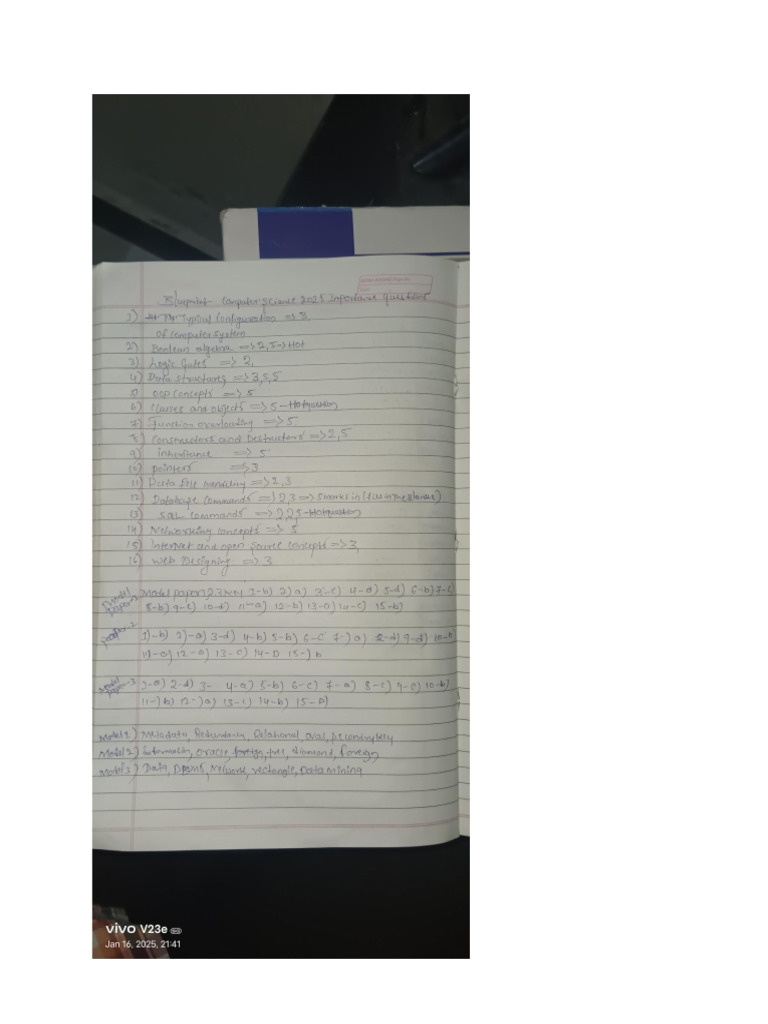 Blueprint Computer Science 2025 Importance Questions
1) Typical Configuration => 3,
Of Computer System
2) Boolean algebra => 2,5->Hot
3) Logic Gates => 2,
4) Data structures => 3,5,5
5) OOP Concepts => 5
6) Classes and objects => 5-Hotquestion
7) Function overloading => 5
8) Constructors and Destructors => 2,5
9) inheritance => 5
10) pointers => 3
11) Data File handling => 2,3
12) Database Commands => 2,3 => 5marks in
13) SQL Commands => 2,2,5-Hotquestion
14) Networking concepts => 5
15) Internet and open Source concepts => 3,
16) Web Designing => 3
Model paper 1,2,3 key 1-b) 2)a) 3-c) 4-a) 5-d) 6-b) 7-c)
8-b) 9-c) 10-d) 11-a) 12-b) 13-D) 14-c) 15-b)
1)-b) 2)-a) 3-d) 4-b) 5-b) 6-C 7-)a) 8-d) 9-d)
11)-a) 12-a) 13-c) 14-D 15-)b
Model paper-3 1-a) 2-d) 3- 4-a) 5-b) 6-c) 7-a) 8-c) 9-c) 10-b)
11-)b) 12-)a) 13-c) 14-b) 15-D)
Model 1) Metadata, Redundancy, Relational, oval,
Model 2) Information, Oracle, foreign, tree, diamond, foreign
Model 3) Data, DBMS, Network, rectangle, Data mining
vivo V23e 5G
Jan 16, 2025, 21:41